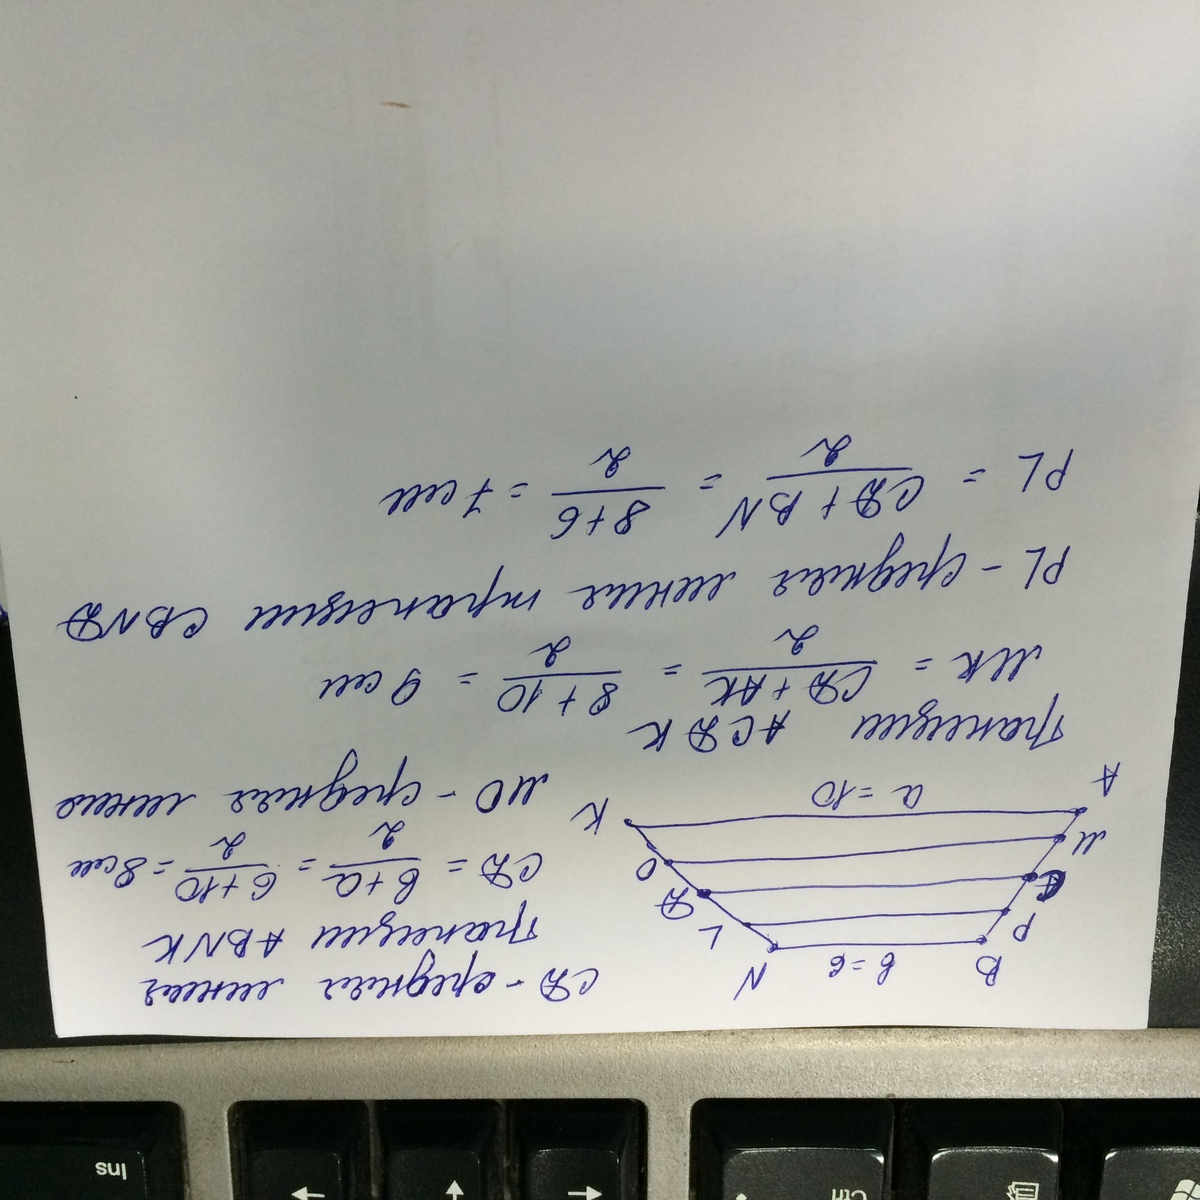 B
b=6
N
P
L
C
D
M
O
A
a=10
K
CD - средняя линия
трапеции ABNK
CD = b+a/2 = 6+10/2 = 8см
MO - средняя линия
трапеции ACDK
MK = CD+AK/2 = 8+10/2 = 9см
PL - средняя линия трапеции CBND
PL = CD+BN/2 = 8+6/2 = 7см
Ctrl
Ins